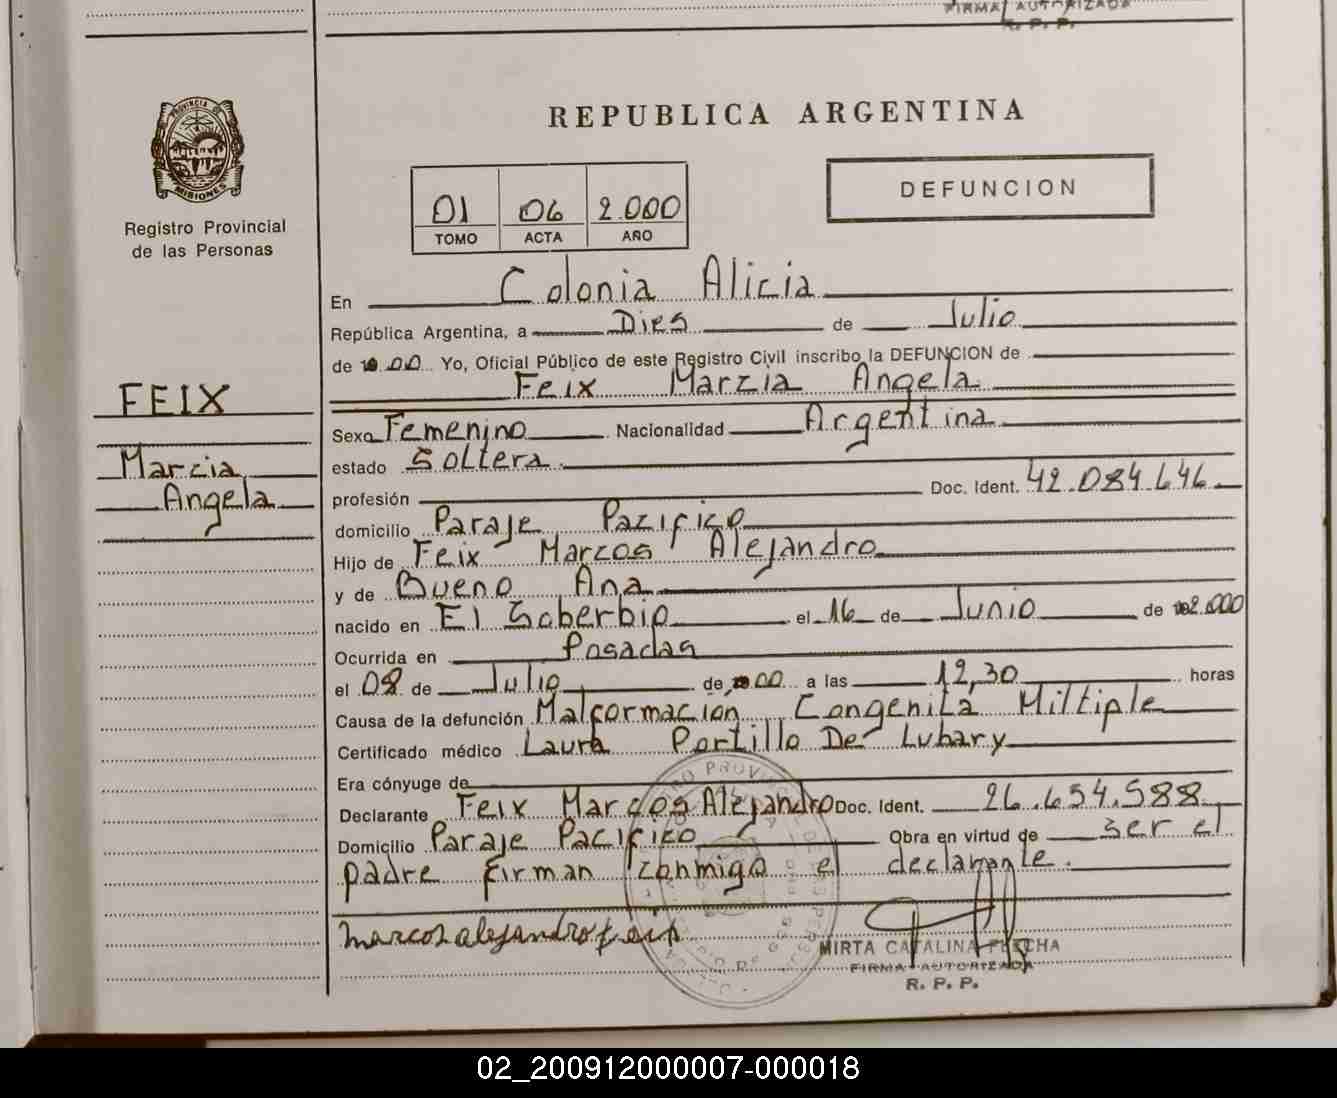 FIRMA AUTORIZADA
R. P. P.
PROVINCIA DE
MISIONES
Registro Provincial
de las Personas
REPUBLICA ARGENTINA
DEFUNCION
01 06 2.000
TOMO ACTA AÑO
En Colonia Alicia
República Argentina, a Dies de Julio
de 00 Yo, Oficial Público de este Registro Civil inscribo la DEFUNCION de
Feix Marzia Angela
FEIX
Marcia
Angela
Sexo Femenino Nacionalidad Argentina
estado Soltera
profesión Doc. Ident. 42.084.646
domicilio Paraje Pazifico
Hijo de Feix Marcos Alejandro
y de Bueno Ana
nacido en El Soberbio el 16 de Junio de 2.000
Ocurrida en Posadas
el 08 de Julio de 00 a las 12,30 horas
Causa de la defunción Malformación Congenita Miltiple
Certificado médico Laura Portillo De Lubary
Era cónyuge de
Declarante Feix Marcos Alejandro Doc. Ident. 26.654.588
Domicilio Paraje Pacifico Obra en virtud de ser el
padre firman conmigo el declarante.
marcos alejandro feix
MIRTA CATALINA FLECHA
FIRMA AUTORIZADA
R. P. P.
02_200912000007-000018